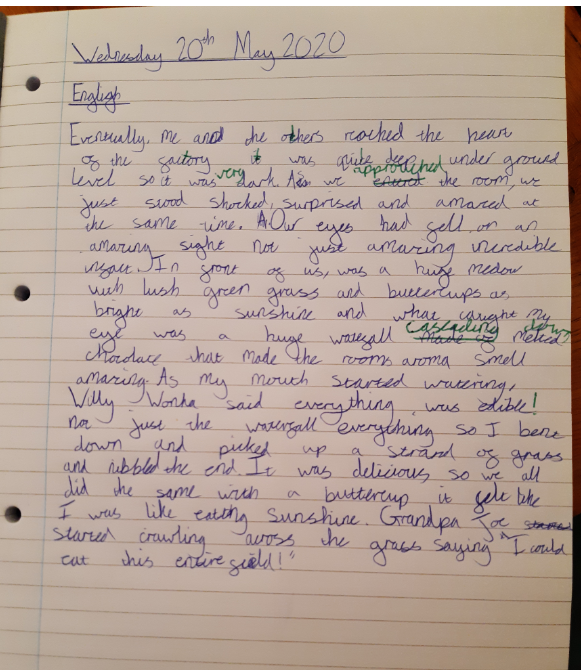 Wednesday 20th May 2020
English
Eventually, me and the others reached the heart
of the factory it was quite deep under ground
level so it was very dark. As we approached entered the room, we
just stood shocked, surprised and amazed at
the same time. Our eyes had fell on an
amazing sight not just amazing incredible
infact. In front of us, was a huge medow
with lush green grass and buttercups as
bright as sunshine and what caught my
eye was a huge waterfall cascading down made of melted
chocolate that made the rooms aroma smell
amazing. As my mouth started watering,
Willy Wonka said everything was edible!
not just the waterfall everything so I bent
down and picked up a strand of grass
and nibbled the end. It was delicious so we all
did the same with a buttercup it felt like
I was like eating sunshine. Grandpa Joe
started crawling across the grass saying "I could
eat this entire field!"